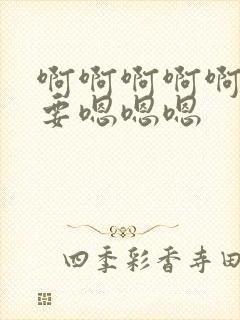 啊啊啊啊啊
要嗯嗯嗯
四季彩香寺田